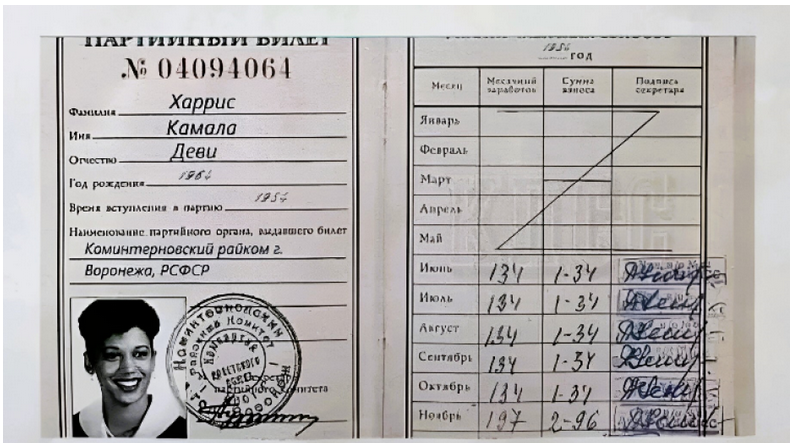 ПАРТИЙНЫЙ БИЛЕТ
№ 04094064
Фамилия Харрис
Имя Камала
Отчество Деви
Год рождения 1964
Время вступления в партию 1957
Наименование партийного органа, выдавшего билет
Коминтерновский райком г.
Воронежа, РСФСР
партийного комитета
1956 год
Месяц Месячный заработок Сумма взноса Подпись секретаря
Январь
Февраль
Март
Апрель
Май
Июнь 134 1-34
Июль 134 1-34
Август 134 1-34
Сентябрь 134 1-34
Октябрь 134 1-34
Ноябрь 197 2-96